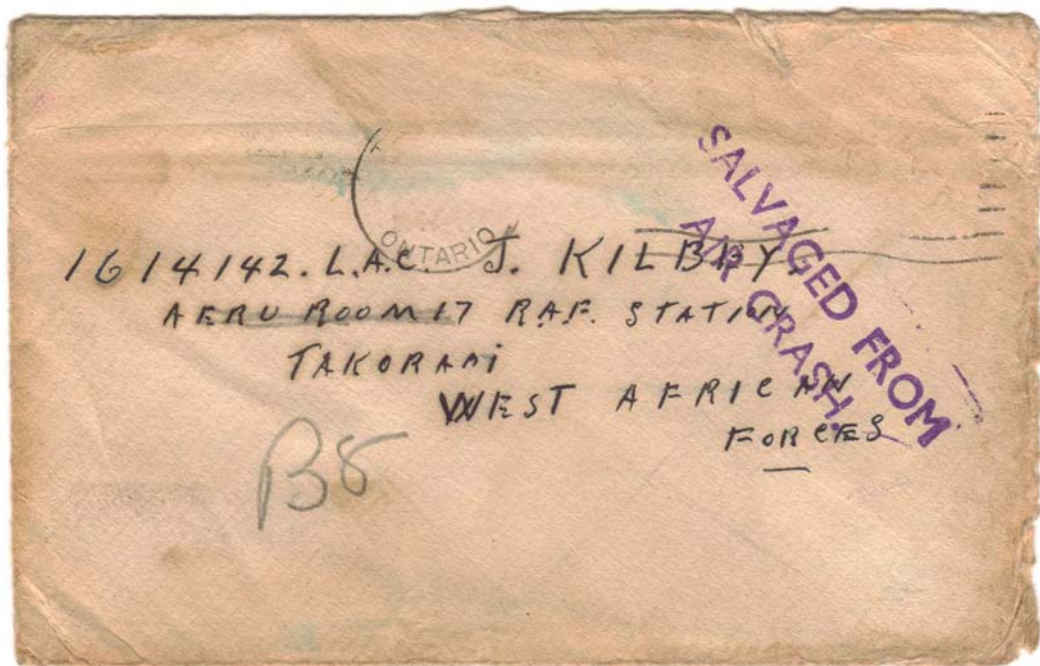 SALVAGED FROM
AIR CRASH.
ONTARIO
1614142. L.A.C. J. KILBBY.
AERU ROOM 17 R.A.F. STATION
TAKORADI
WEST AFRICAN
FORCES
B8